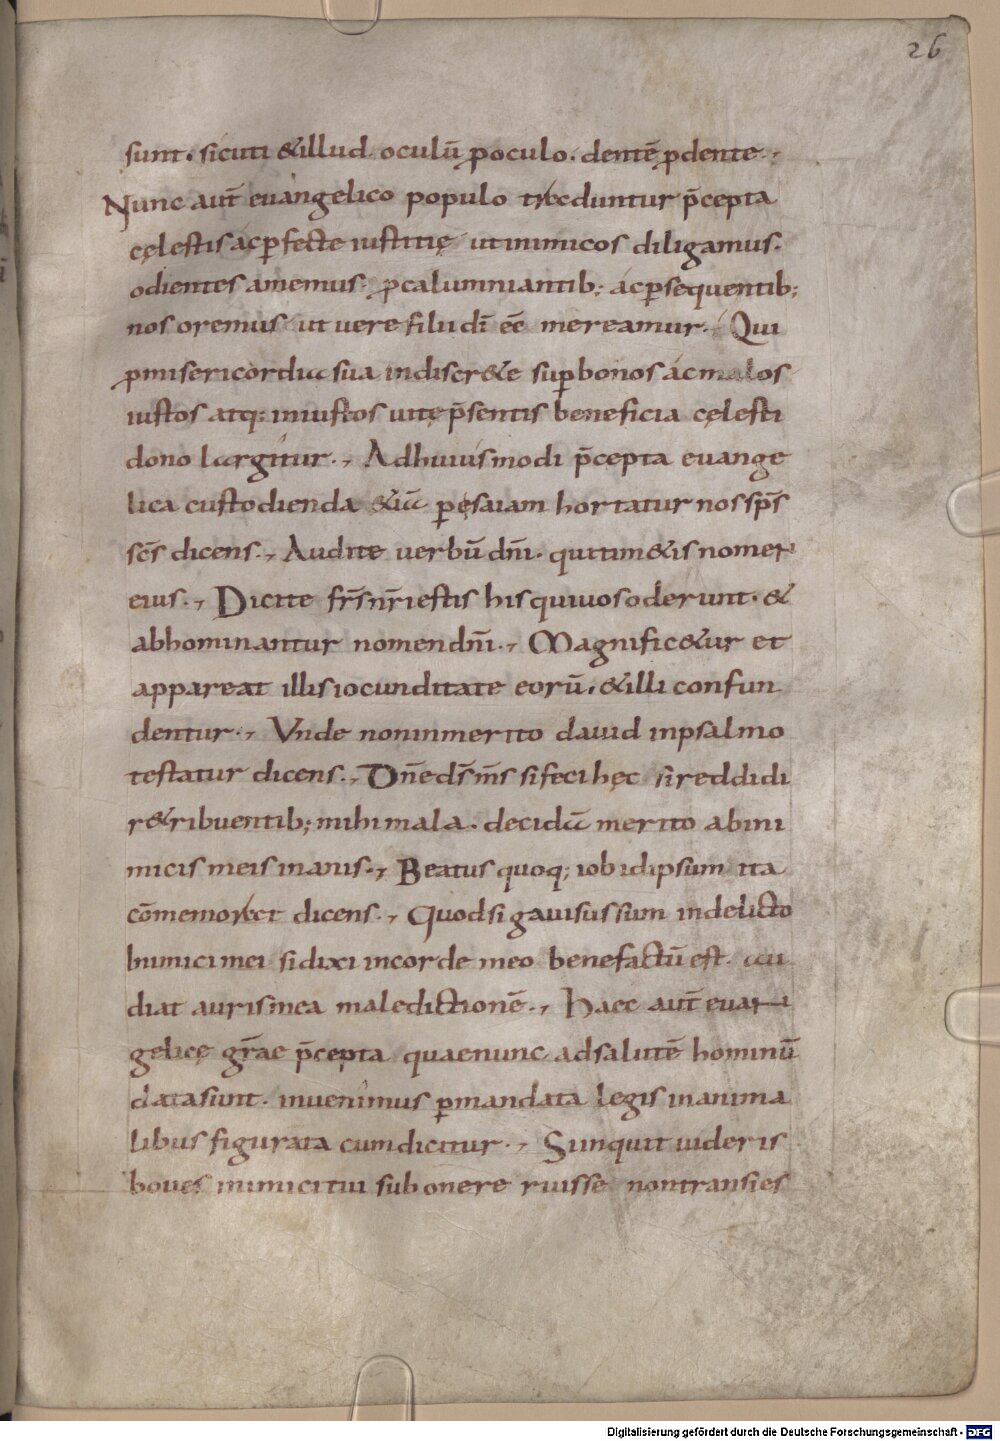 26
sunt. sicuti &illud oculū ꝓoculo. dentē ꝓdente.,
Nunc aut̄ euangelico populo traduntur p̄cepta
cęlestis acꝑfecte iustitię ut inimicos diligamus.
odientes amemus. ꝓcalumniantib; acꝑsequentib;
nos oremus ut uere filii dī eē mereamur. Qui
ꝓmisericordia sua indiscr&e suꝑbonos ac malos
iustos atq; iniustos uitę p̄sentis beneficia cęlesti
dono largitur., Adhuiusmodi p̄cepta euange
lica custodienda &iā ꝑesaiam hortatur nos sp̄s
sc̄s dicens., Audite uerbū dn̄i. qui tim&is nomen
eius., Dicite fr̄s nr̄i estis his qui uos oderunt. &
abhominantur nomen dn̄i., Magnific&ur et
appareat illis iocunditate eorū. &illi confun
dentur., Vnde non inmerito dauid inpsalmo
testatur dicens., Dn̄e ds̄ ms̄ si feci hęc si reddidi
r&ribuentib; mihi mala. decidā merito abini
micis meis inanis., Beatus quoq; iob idipsum ita
cōmemorat dicens., Quodsi gauisus sum indelicto
inimici mei si dixi incorde meo benefactū est. au
diat auris mea maledictionē., Haec aut̄ euan
gelicę gr̄ae p̄cepta quae nunc adsalutē hominū
data sunt. inuenimus ꝑmandata legis inanima
libus figurata cum dicitur., Si inquit uideris
boues inimici tui sub onere ruisse non transies
Digitalisierung gefördert durch die Deutsche Forschungsgemeinschaft - DFG